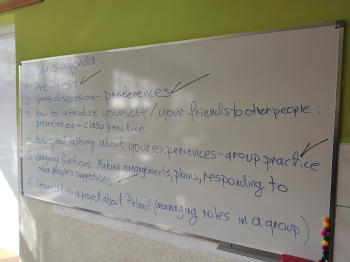 agenda:
1. Pre-test
2. Group discussion - preferences
3. How to introduce yourself / your friends to other people:
presentation + class practice
4. Asking and talking about your experiences - group practice
5. functions. Making arrangements, plans, responding to
other people's suggestions
6. a project about Poland (managing roles in a group)